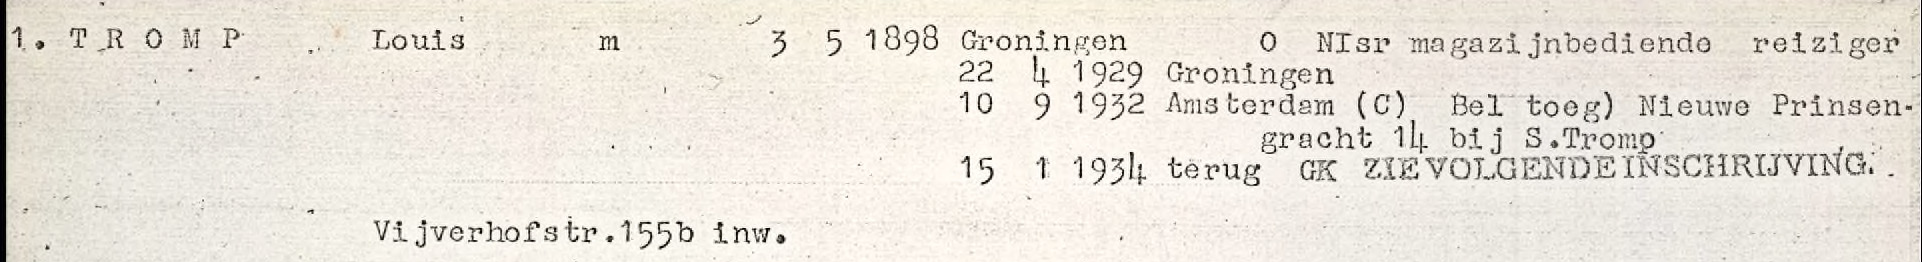 1. T R O M P Louis m 3 5 1898 Groningen O NIsr magazijnbediende reiziger
22 4 1929 Groningen
10 9 1932 Amsterdam (C) Bel toeg) Nieuwe Prinsen-
gracht 14 bij S.Tromp
15 1 1934 terug GK ZIE VOLGENDE INSCHRIJVING.
Vijverhofstr.155b inw.